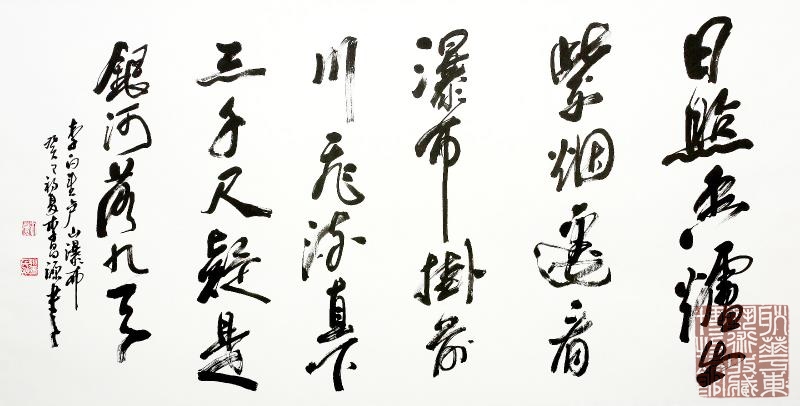 日照香爐生
紫烟遥看
瀑布掛前
川飛流直下
三千尺疑是
銀河落九天
李白望庐山瀑布
癸巳初夏李昌源书